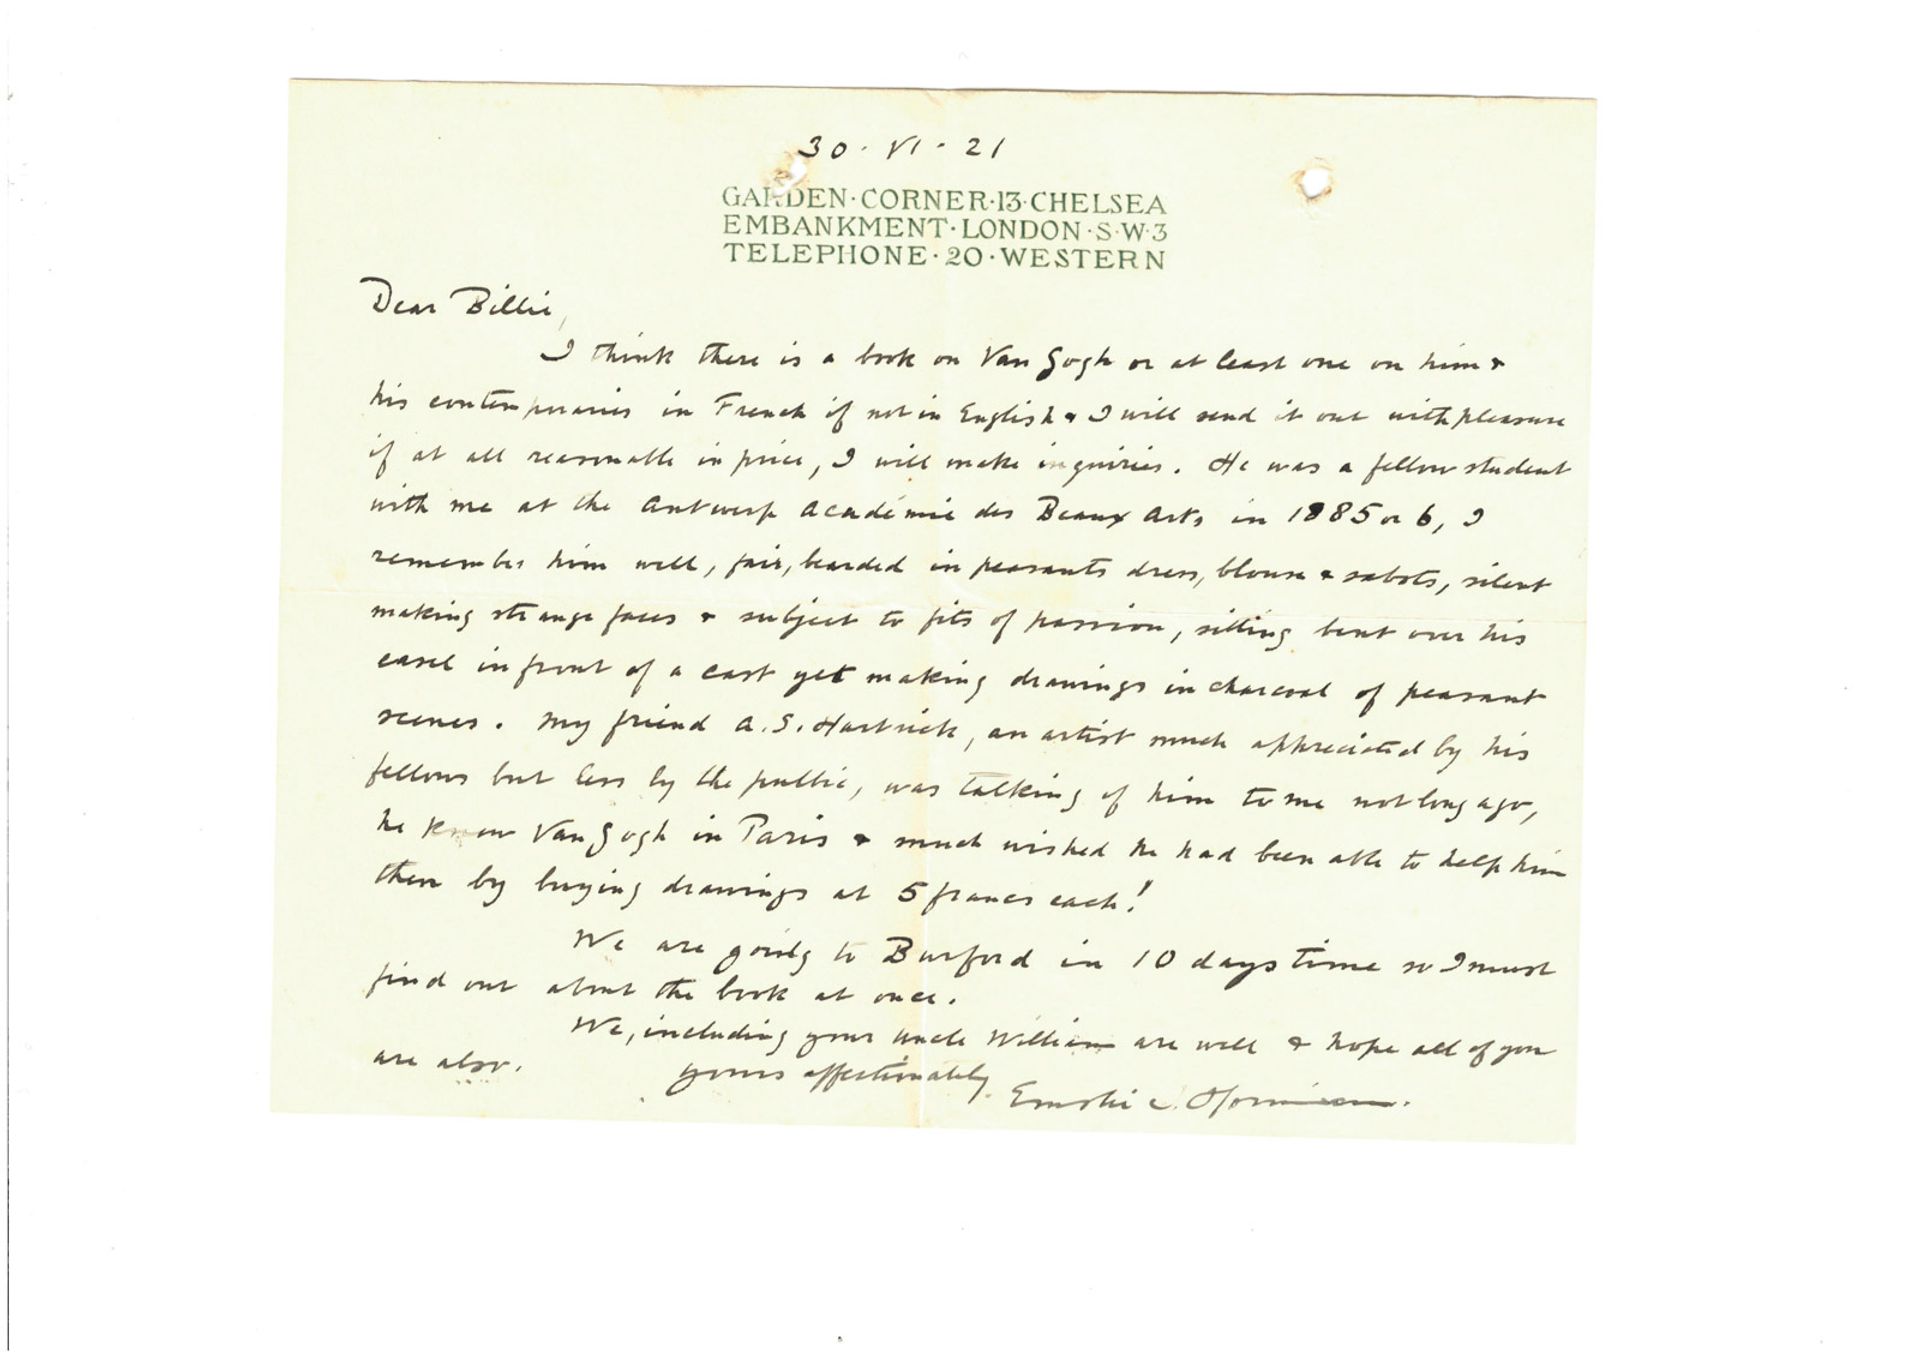 30 · VI · 21
GARDEN·CORNER·13·CHELSEA
EMBANKMENT·LONDON·S·W·3
TELEPHONE·20·WESTERN
Dear Billie,
I think there is a book on Van Gogh or at least one on him &
his contemporaries in French if not in English & I will send it out with pleasure
if at all reasonable in price, I will make inquiries. He was a fellow student
with me at the Antwerp Académie des Beaux Arts in 1885 or 6, I
remember him well, fair, bearded in peasants dress, blouse & sabots, silent
making strange faces & subject to fits of passion, sitting bent over his
easel in front of a cast yet making drawings in charcoal of peasant
scenes. My friend A.S. Hartrick, an artist much appreciated by his
fellows but less by the public, was talking of him to me not long ago,
he knew Van Gogh in Paris & much wished he had been able to help him
then by buying drawings at 5 francs each!
We are going to Burford in 10 days time so I must
find out about the book at once.
We, including your uncle William are well & hope all of you
are also.
yours affectionately